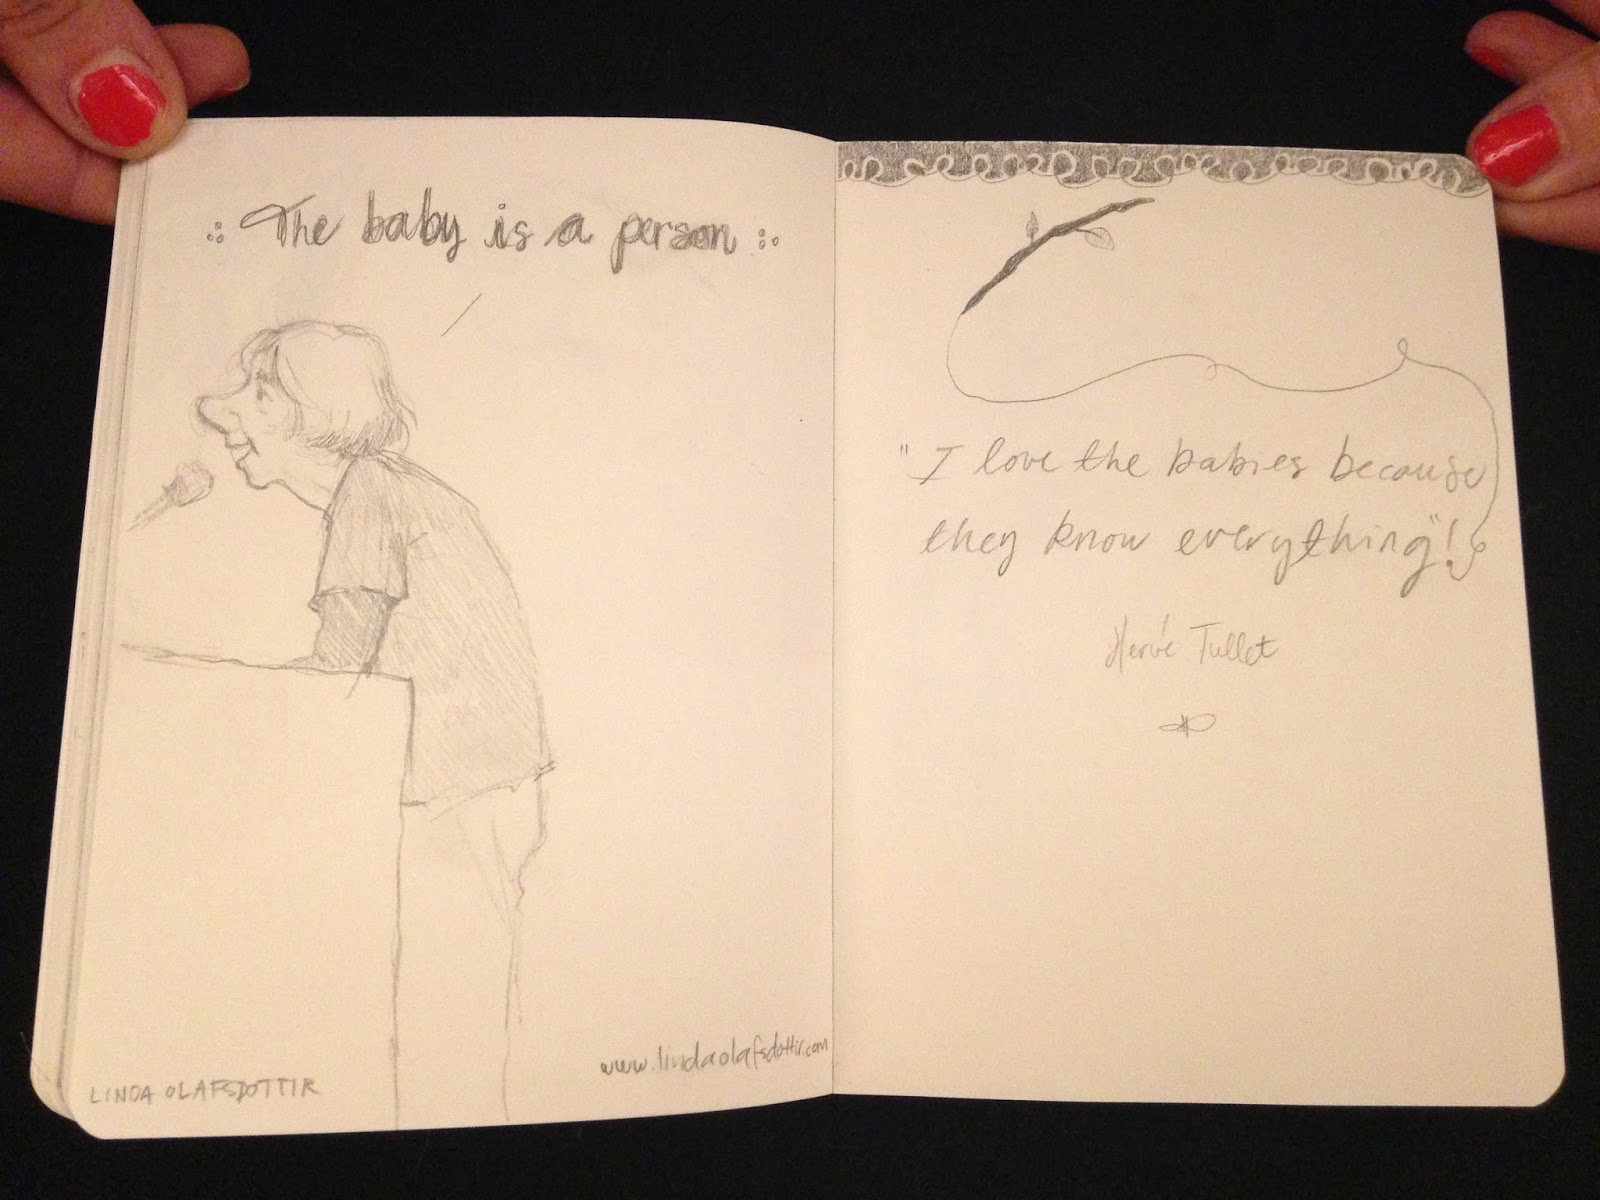 The baby is a person
LINDA OLAFSDOTTIR
www.lindaolafsdottir.com
"I love the babies because
they know everything"!
Hervé Tullet